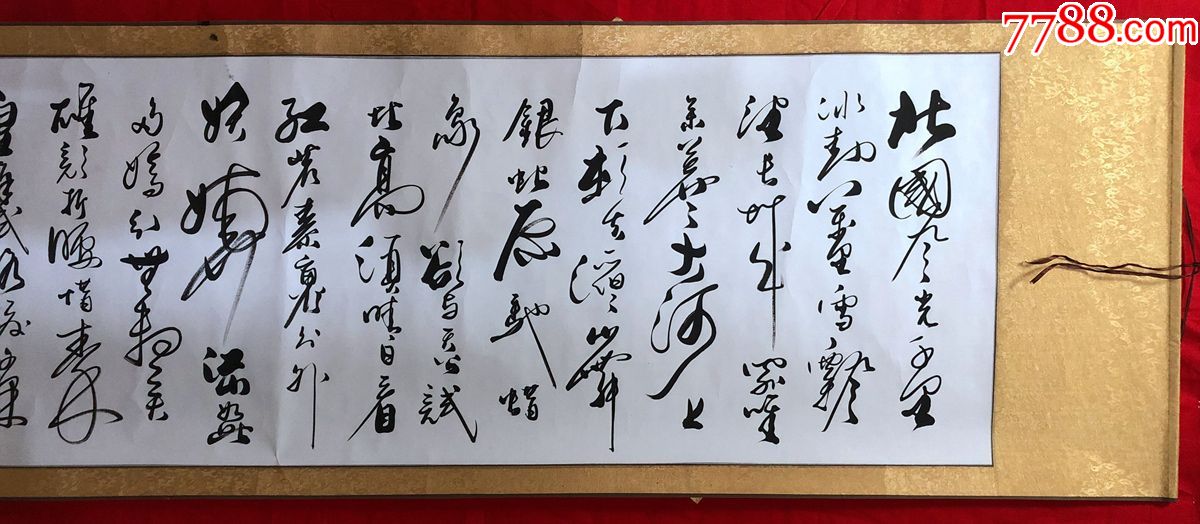 7788.com
北國风光千里
冰封万里雪飘
望长城内外惟
余莽莽大河上
下顿失滔滔山舞
银蛇原驰蜡
象欲与天公试
比高须晴日看
红装素裹分外
妖娆
多娇引无数英
雄竞折腰惜秦
皇汉武略